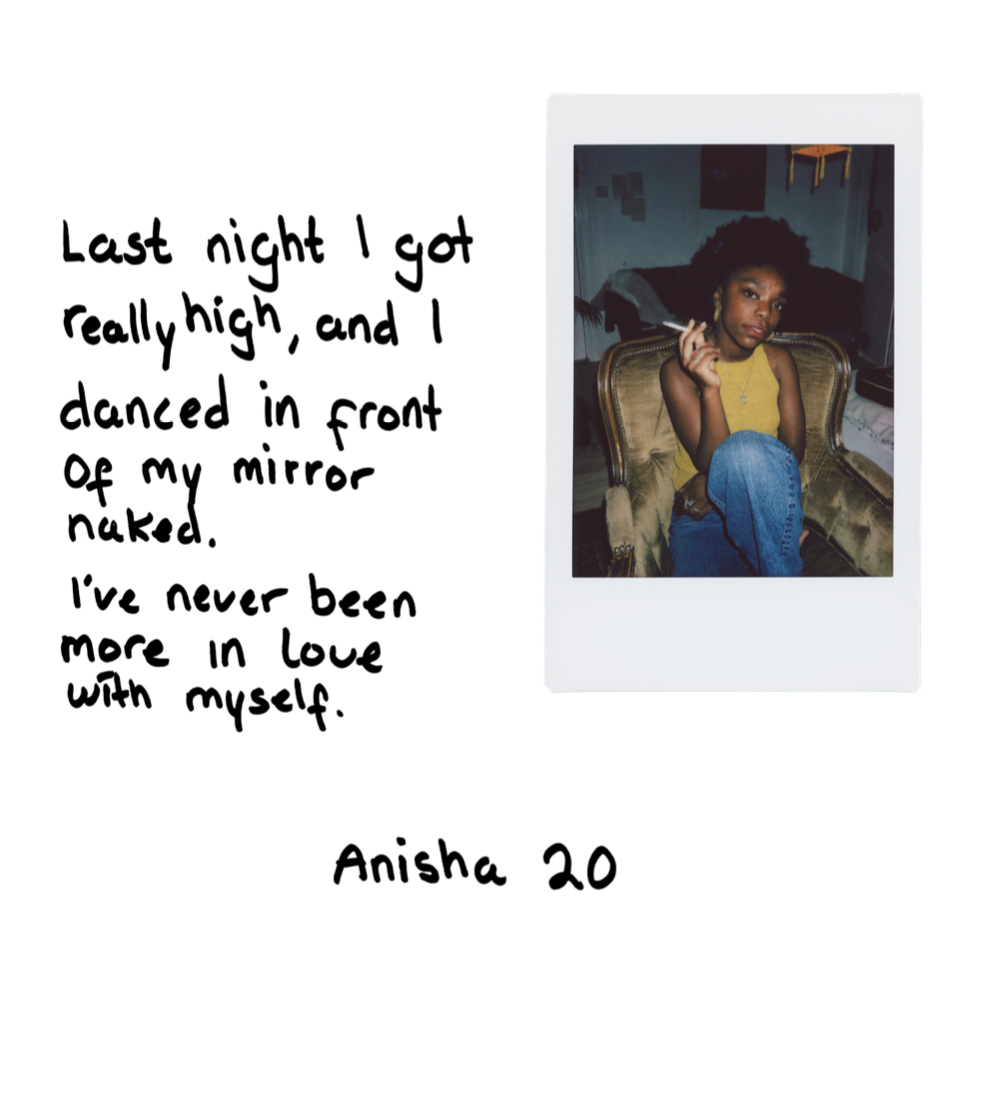 Last night I got
really high, and I
danced in front
Of my mirror
naked.
I've never been
more in love
with myself.
Anisha 20